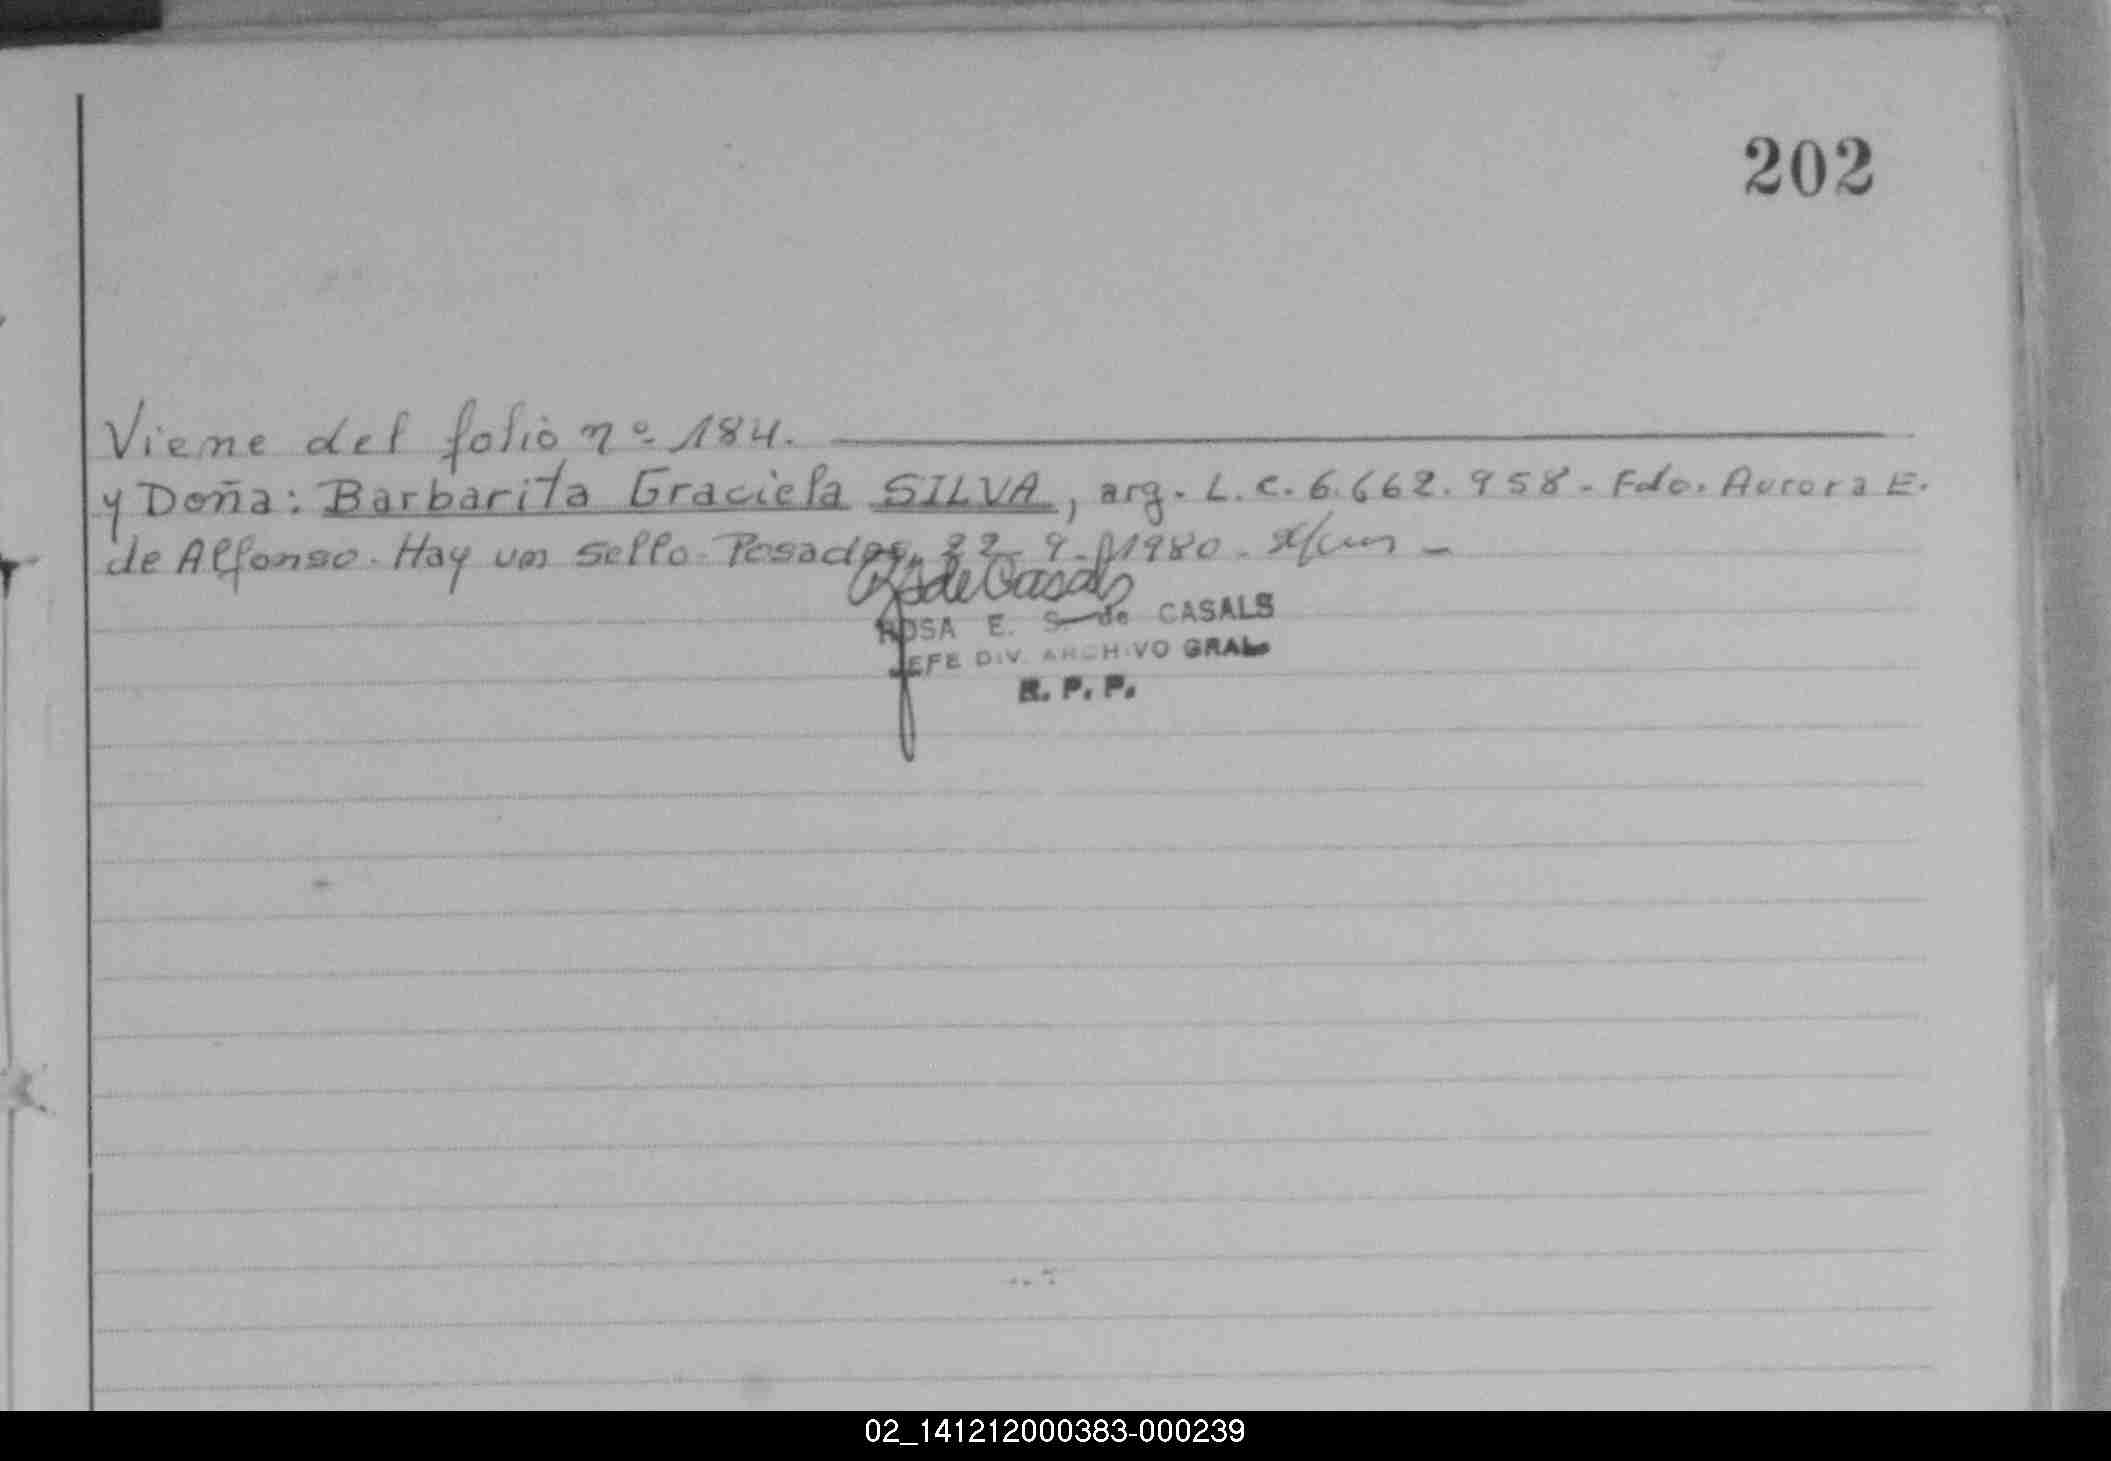 202
Viene del folio nº 184.
y Doña: Barbarita Graciela SILVA, arg. L.C. 6.662.958. Fdo. Aurora E.
de Alfonso. Hay un sello. Posadas, 22-9-1980.
de Casals
ROSA E. S. de CASALS
JEFE DIV. ARCHIVO GRAL.
R. P. P.
02_141212000383-000239